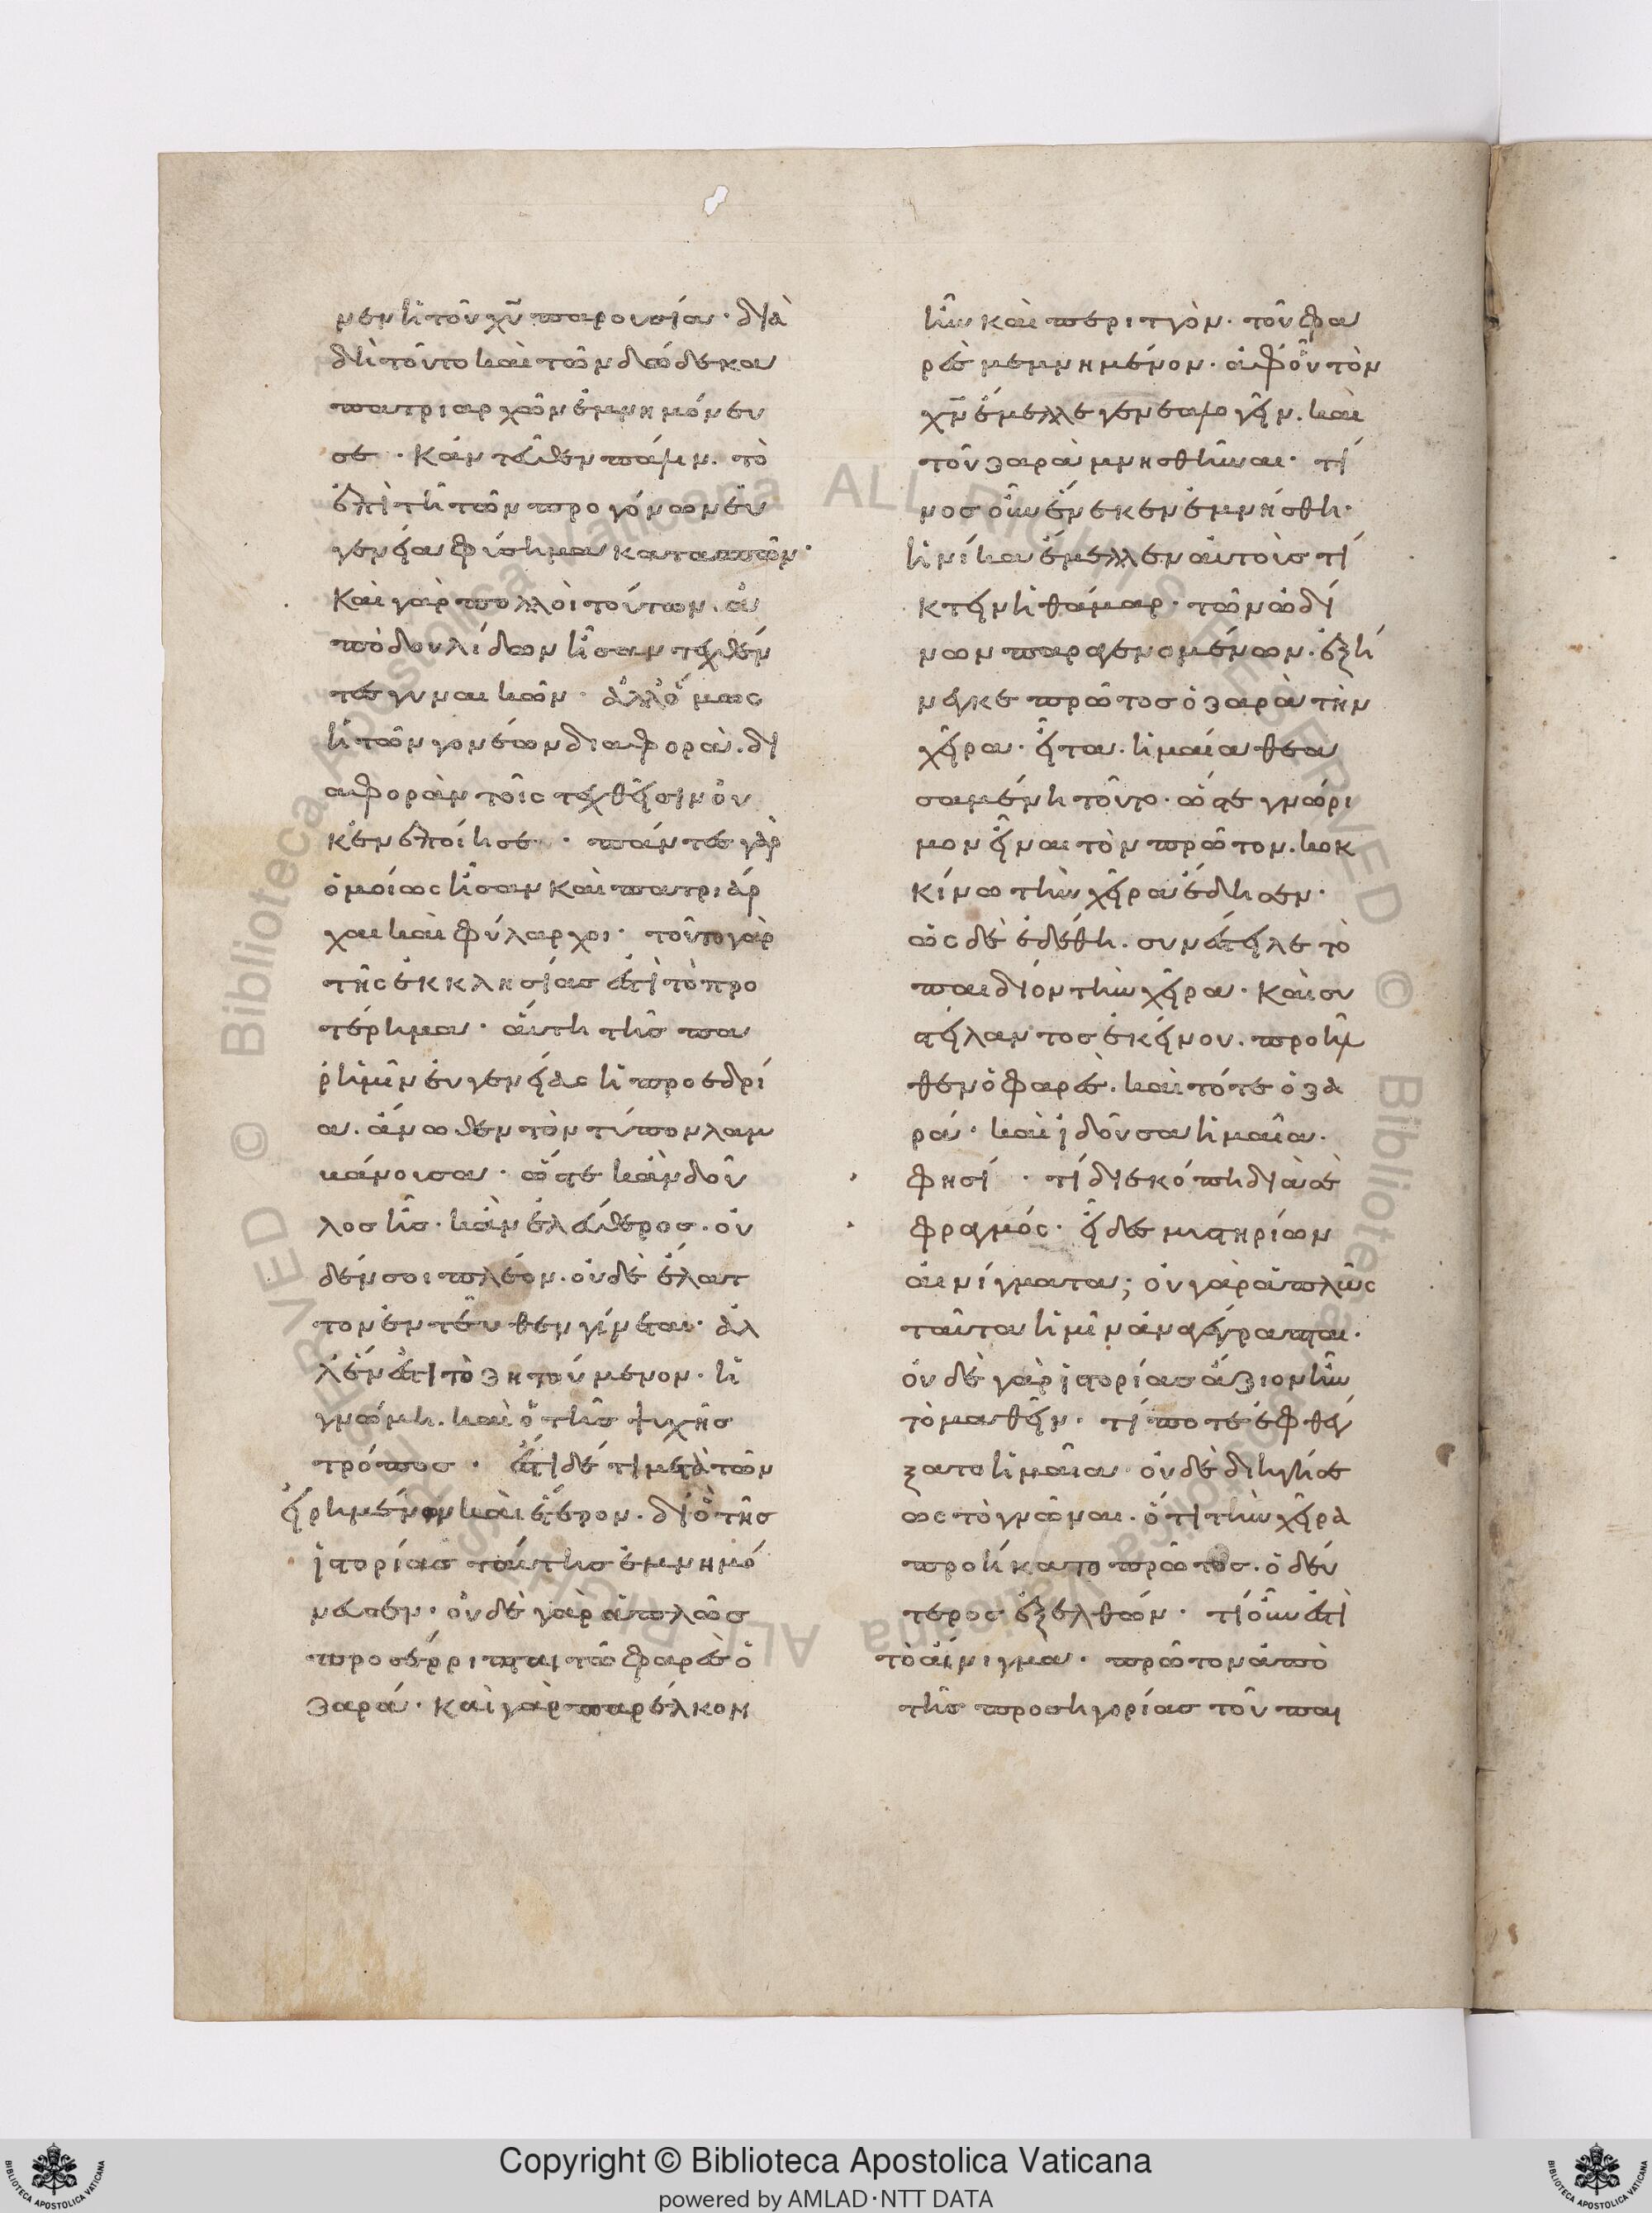 μενη τοῦ χυ παρουσία· διὰ
δὴ τοῦτο καὶ τῶν δώδεκα
πατριαρχῶν ἐμνημόνευ
σε· Κἀντεῦθεν πάλιν. τὸ
ἐπὶ τῆ τῶν προγόνων εὐ
γενεία φύσημα καταπτῶν·
Καὶ γὰρ πολλοὶ τούτων. ἀ
πὸ δουλίδων ἦσαν τεχθέν
τες γυναικῶν· ἀλλ' ὅμως
ἡ τῶν γονέων διαφορὰ. δι
αφορὰν τοῖς τεχθεῖσιν οὐ
κ ἐνεποίησε· πάντες γὰρ
ὁμοίως ἦσαν Καὶ πατριάρ
χαι καὶ φύλαρχοι· τοῦτο γὰρ
τῆς ἐκκλησίας ἐστὶ τὸ προ
τέρημα· αὕτη τῆς πα
ρ' ἡμῖν εὐγενείας ἡ προεδρί
α. ἄνωθεν τὸν τύπον λαμ
βάνουσα· ὥστε κἂν δοῦ
λος ἦς. κἂν ἐλεύθερος. οὐ
δέν σοι πλέον. οὐδὲ ἔλατ
τον ἐντεῦθεν γίνεται· ἀλ
λ' ἕν ἐστι τὸ ζητούμενον. ἡ
γνώμη. καὶ ὁ τῆς ψυχῆς
τρόπος· ἔστι δέ τι μετὰ τῶν
εἰρημένων καὶ ἕτερον. δι' ὃ τῆς
ἱστορίας ταύτης ἐμνημό
νευσεν· οὐδὲ γὰρ ἁπλῶς
προσέρριπται τῶ φαρὲς ὁ
Ζαρά· Καὶ γὰρ παρέλκον
ἦν καὶ περιττὸν. τοῦ φα
ρὲς μεμνημένον. ἀφ' οὗ τὸν
χν ἔμελλε γενεαλογεῖν. καὶ
τοῦ ζαρὰ μνησθῆναι· τί
νος οὖν ἕνεκεν ἐμνήσθη·
ἡνίκα ἔμελλεν αὐτοὺς τί
κτειν ἡ θάμαρ· τῶν ὠδί
νων παραγενομένων. ἐξή
νεγκε πρῶτος ὁ ζαρὰ τὴν
χεῖρα· εἶτα. ἡ μαῖα θεα
σαμένη τοῦτο. ὥστε γνώρι
μον εἶναι τὸν πρῶτον. κοκ
κίνω τὴν χεῖρα ἔδησεν·
ὡς δὲ ἐδέθη. συνέστειλε τὸ
παιδίον τὴν χεῖρα· Καὶ συ
στείλαντος ἐκείνου. προῆλ
θεν ὁ φαρές. καὶ τότε ὁ ζα
ρά· καὶ ἰδοῦσα ἡ μαῖα.
φησί· τί διεκόπη διὰ σὲ
φραγμός· εἶδες μυστηρίων
αἰνίγματα; οὐ γὰρ ἁπλῶς
ταῦτα ἡμῖν ἀναγέγραπται.
οὐδὲ γὰρ ἱστορίας ἄξιον ἦν
τὸ μαθεῖν. τί ποτε ἐφθέγ
ξατο ἡ μαῖα· οὐδὲ διηγήσε
ως τὸ γνῶναι. ὅτι τὴν χεῖρα
προήκατο πρῶτος. ὁ δεύ
τερος ἐξελθών· τί οὖν ἐστὶ
τὸ αἴνιγμα· πρῶτον ἀπὸ
τῆς προσηγορίας τοῦ παι